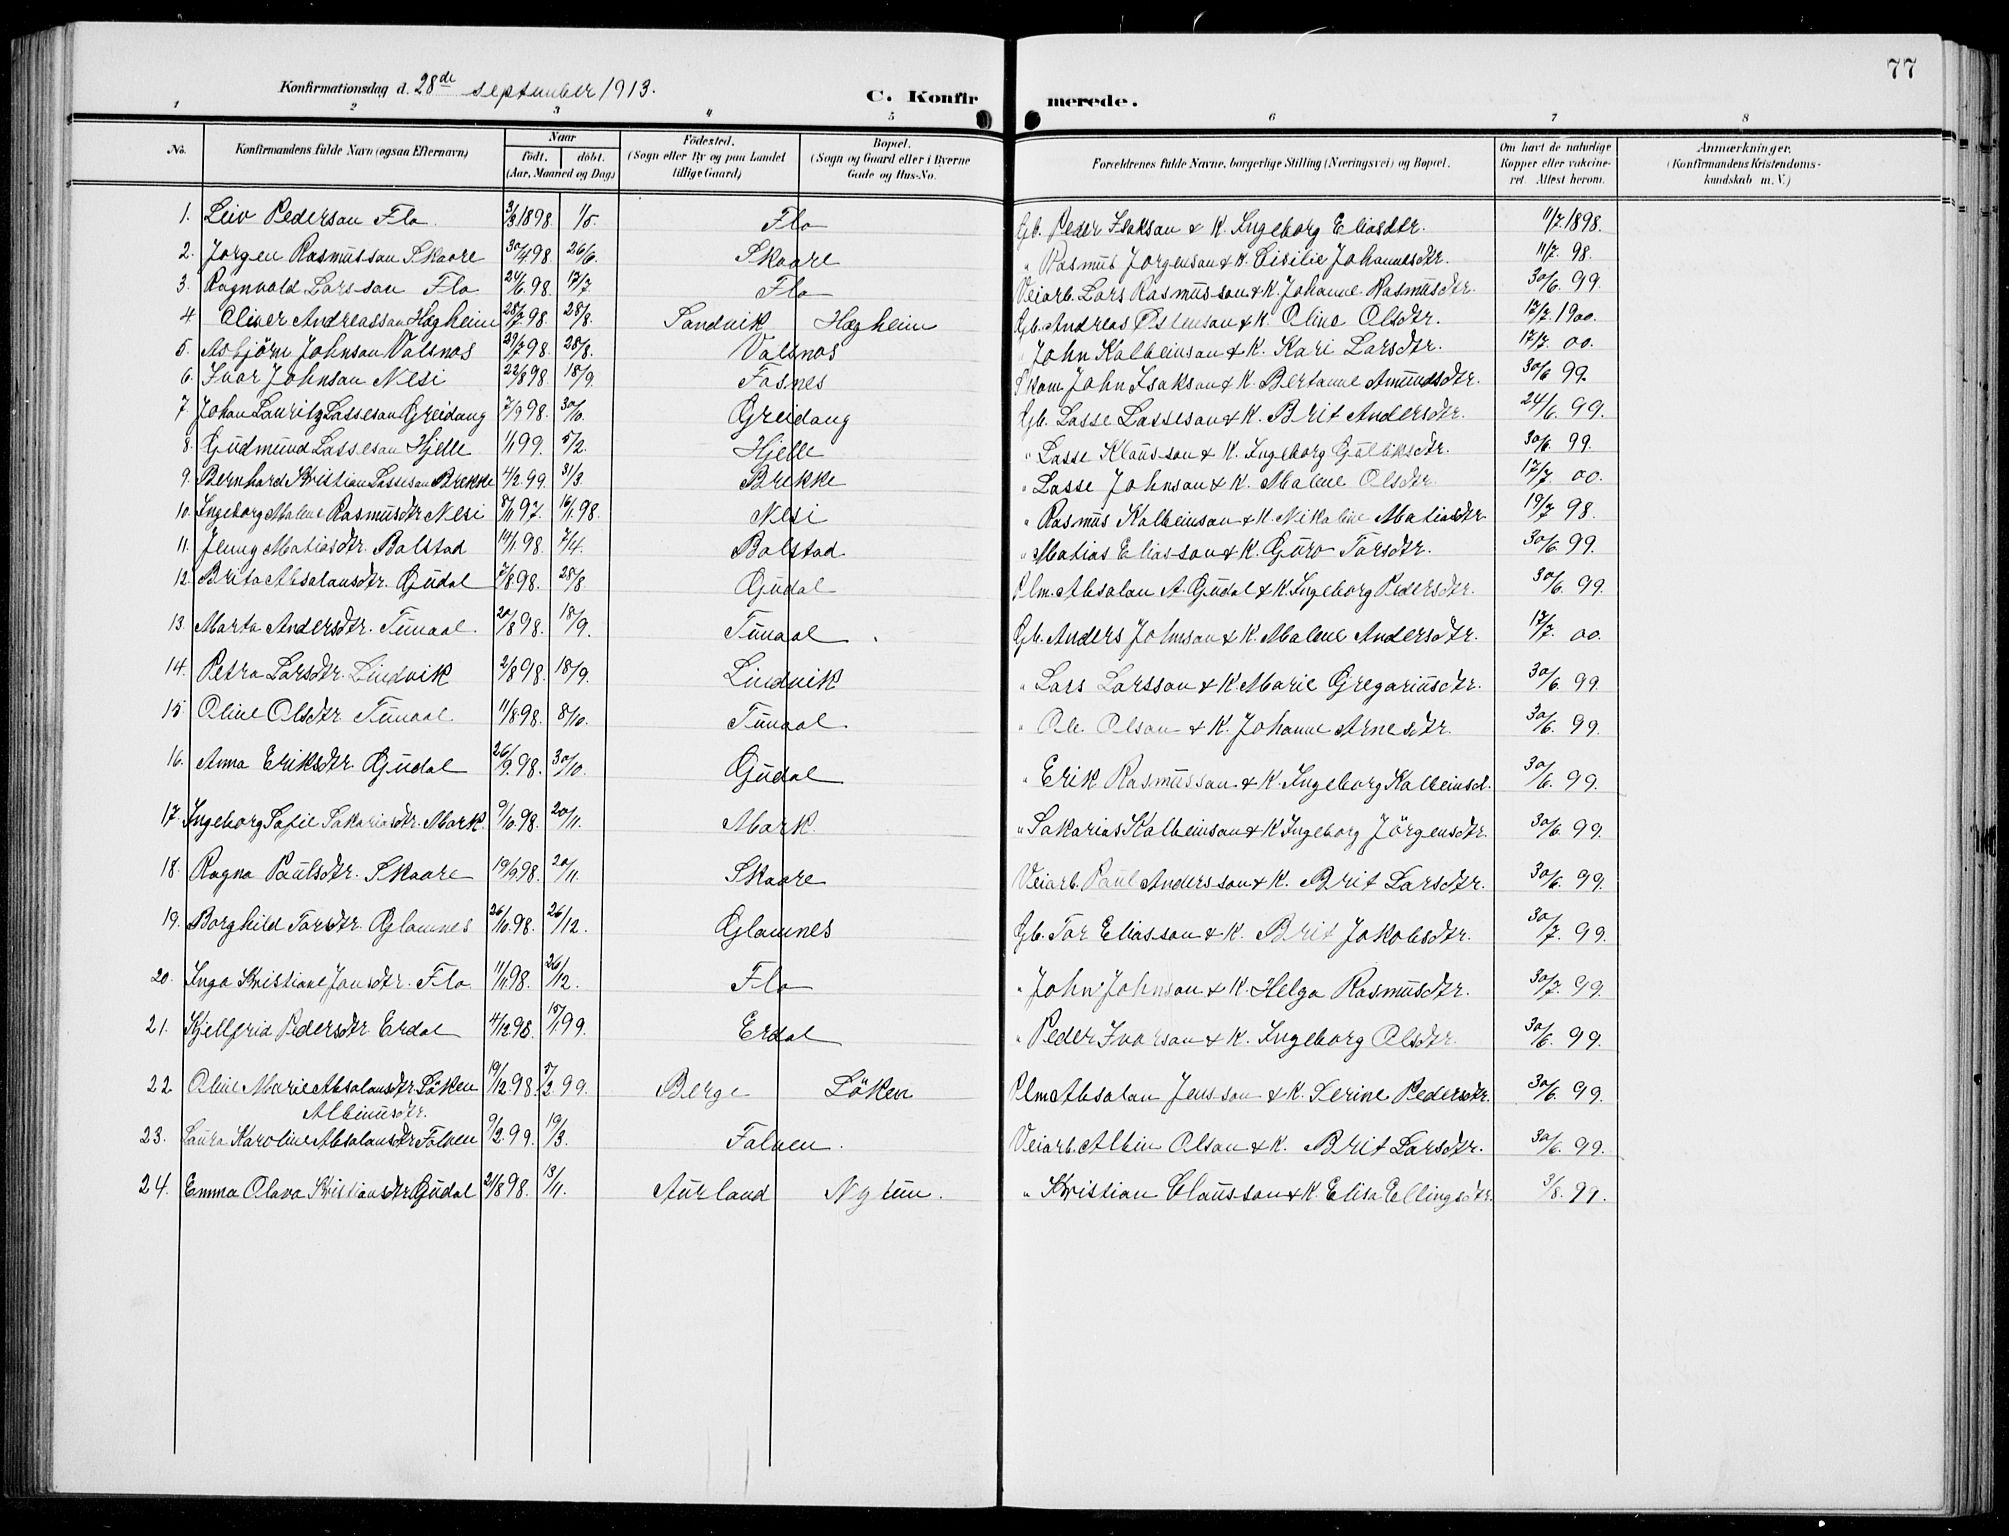 77
Konfirmationsdag d. 28de september 1913.
C. Konfirmerede.
1 2 3 4 5 6 7 8
No. Konfirmandens fulde Navn (ogsaa Efternavn) Naar født. døbt. (Aar, Maaned og Dag) Fødested. (Sogn eller By og paa Landet tillige Gaard) Bopæl. (Sogn og Gaard eller i Byerne Gade og Hus-No. Forældrenes fulde Navne, borgerlige Stilling (Næringsvei) og Bopæl. Om havt de naturlige Kopper eller vakcineret. Attest herom. Anmærkninger. (Konfirmandens Kristendomskundskab m. V.)
1. Leiv Pederson Flo. 3/3 1898. 1/5. Flo Gb. Peder Isakson & K. Ingeborg Eliasdtr. 11/7. 1898.
2. Jorgen Rasmusson Skaare 30/4 98. 26/6. Skaare " Rasmus Jorgenson & K. Cisilie Johannesdtr. 11/7. 98.
3. Ragnvald Larsson Flo 24/6. 98. 17/7. Flo Veiarb. Lars Rasmusson & K. Johanne Rasmusdtr. 30/6. 99.
4 Oliver Andreasson Hægheim 28/7 98. 28/8. Sandvik Hægheim Gb. Andreas Østenson & K. Oline Olsdtr. 17/7. 1900.
5. Asbjörn Johnson Valsnos 29/7 98. 28/8. Valsnos " John Kolbeinson & K. Kari Larsdtr. 17/7. 00.
6. Ivar Johnson Nesi 22/8 98. 18/9. Fosnes Skom John Isakson & K. Bertanne Amundsdtr. 30/6 99.
7 Johan Lauritz Lasseson Greidung 7/9 98. 30/10. Greidung Gb. Lasse Lasseson & K. Brit Andersdtr. 24/6. 99.
8. Gudmund Lasseson Hjelle 1/1 99. 5/2. Hjelle " Lasse Klausson & K. Ingeborg Guliksdtr. 30/6. 99.
9. Bernhard Kristian Lasseson Brekke 4/2. 99. 3/3. Brekke " Lasse Johnson & K. Malene Olsdtr. 17/7. 00.
10. Ingeborg Malene Rasmusdtr Nesi 8/11 97. 16/1. 98. Nesi " Rasmus Kolbeinson & K. Nikoline Matiasdtr 19/7 98.
11. Jenny Matiasdtr. Bolstad 14/1. 98. 7/4. Bolstad " Matias Eliasson & K. Guro Torsdtr. 30/6. 99.
12. Brita Absalonsdtr. Gjudal 7/8 98. 28/8. Gjudal Plm. Absalon A. Gjudal & K. Ingeborg Pedersdtr. 30/6. 99.
13. Marta Andersdtr. Tunaal. 20/8 98. 18/9. Tunaal Gb. Anders Johnson & K. Malene Andersdtr. 17/7. 00.
14. Petra Larsdtr. Lindvik 2/8 98. 18/9. Lindvik " Lars Larsson & K. Marie Gregoriusdtr. 30/6. 99.
15. Oline Olsdtr Tunaal. 11/8 98. 8/10. Tunaal. " Ole Olson & K. Johanne Arnesdtr. 30/6. 99.
16. Anna Eriksdtr Gjudal 26/9. 98. 30/10. Gjudal " Erik Rasmusson & K. Ingeborg Kolbeinsd. 30/6. 99.
17. Ingeborg Sofie Sakariasdtr. Mork. 9/10. 98. 20/11. Mork. " Sakarias Kolbeinson & K. Ingeborg Jörgensdtr. 30/6. 99.
18. Ragna Paulsdtr. Skaare 19/9 98. 20/11. Skaare Veiarb. Paul Andersson & K. Brit Larsdtr. 30/6. 99.
19. Borghild Torsdtr. Glomnes 26/10. 98. 26/12. Glomnes Gb. Tor Eliasson & K. Brit Jakobsdtr. 30/7. 99.
20. Inga Kristiane Jonsdtr. Flo 11/11 98. 26/12. Flo " John Johnson & K. Helga Rasmusdtr. 30/7. 99.
21. Kjellfrid Pedersdtr. Erdal 4/12 98. 15/1 99. Erdal " Peder Ivarson & K. Ingeborg Olsdtr. 30/6. 99.
22 Oline Marie Absalonsdtr. Löken 19/12 98. 5/2 99. Berge Löken Plm Absalon Jensson & K. Serine Pedersdtr. 30/6. 99.
Albinusdtr.
23. Laura Karoline Absalonsdtr Folven 9/2. 99. 19/3. Folven. Veiarb. Albin Olson & K. Brit Larsdtr. 30/6. 99.
24. Emma Olava Kristiansdtr Gjudal 21/8 98. 13/11. Aurland Nytun. " Kristian Clausson & K. Elisa Ellingsdtr. 3/8. 99.